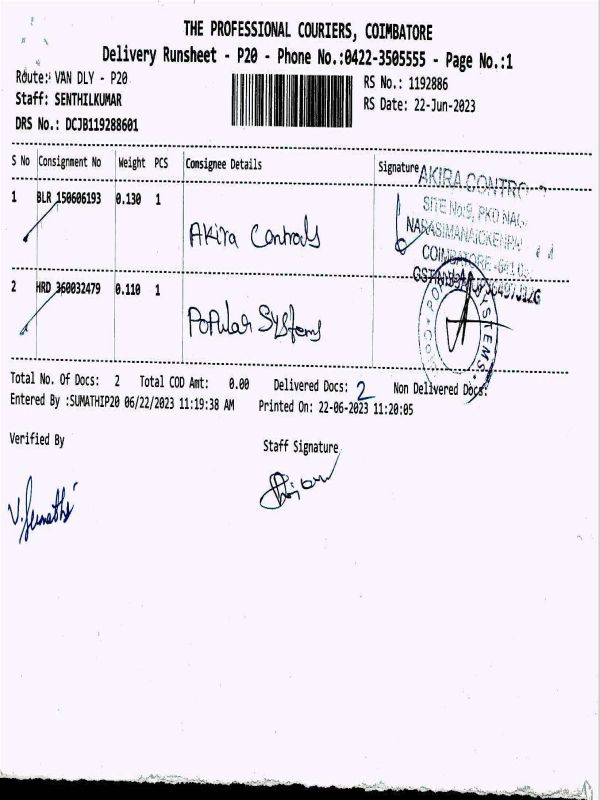 THE PROFESSIONAL COURIERS, COIMBATORE
Delivery Runsheet - P20 - Phone No.:0422-3505555 - Page No.:1
Route: VAN DLY - P20
RS No.: 1192886
Staff: SENTHILKUMAR
RS Date: 22-Jun-2023
DRS No.: DCJB119288601
S No Consignment No Weight PCS Consignee Details Signature
AKIRA CONTRO
1 BLR 150606193 0.130 1
SITE No:9, PKD NAG
NARASIMANAICKENP
Akira Controls
COIMBATORE -641 0
2 HRD 360032479 0.110 1
Popular Systems
SYSTEMS
Total No. Of Docs: 2 Total COD Amt: 0.00 Delivered Docs: 2 Non Delivered Docs:
Entered By :SUMATHIP20 06/22/2023 11:19:38 AM Printed On: 22-06-2023 11:20:05
Verified By
Staff Signature
V. Sumathi